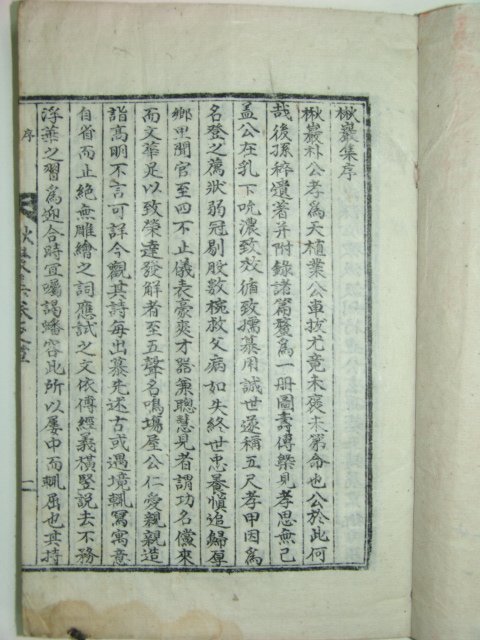 楸巖集序
楸巖朴公孝爲天植業公車拔尤竟未褎未第命也公於此何
哉後孫稡遺著并附錄諸篇釐爲一册圖壽傳槩見孝思無已
盖公在乳下吮濃致效循致孺慕用誠世遂稱五尺孝甲因爲
名登之薦狀弱冠剔股數椀救父病如失終世忠養愼追歸厚
鄕里聞官至四不止儀表豪爽才器兼聰慧見者謂功名儻來
而文華足以致榮達發解者至五聲名鳴場屋公仁愛親親造
詣高明不言可詳今觀其詩每出慕先述古或遇境輒寫寓意
自省而止絶無雕繪之詞應試之文依傅經義橫竪說去不務
浮華之習爲迎合時宜囑謁皤容此所以屢中而輒屈也其持
序
一